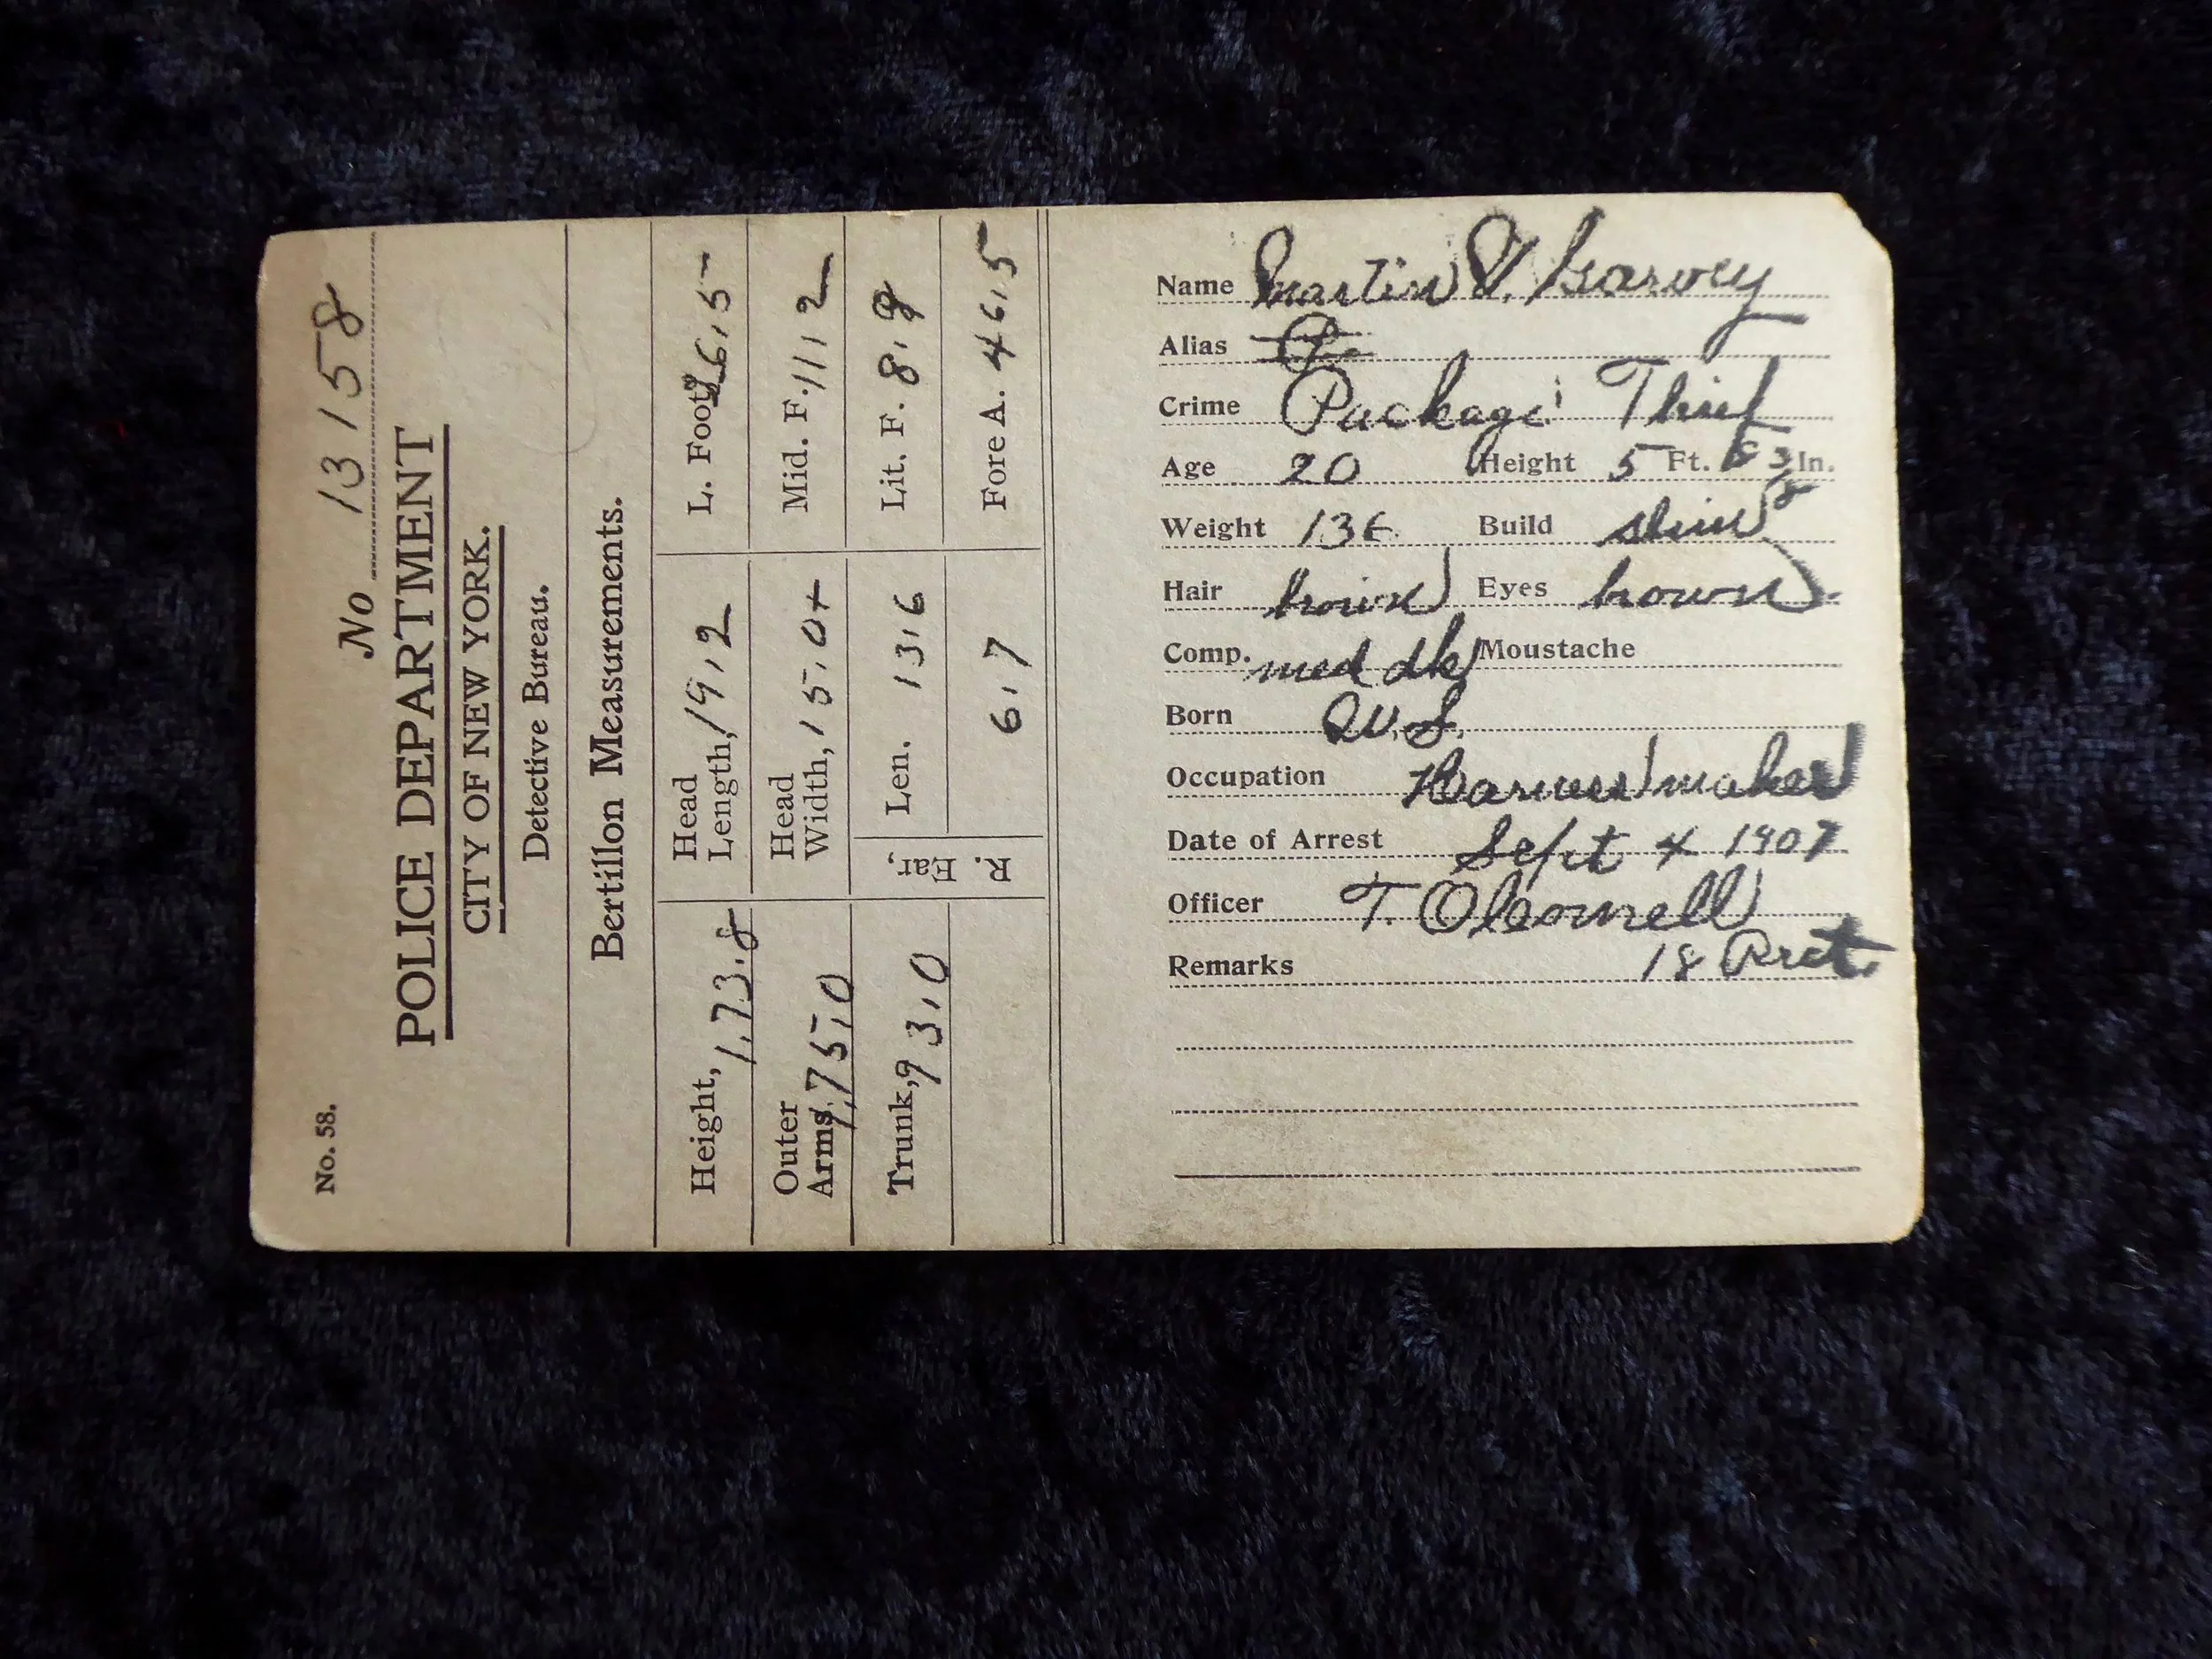 No. 58.
No 13158
POLICE DEPARTMENT
CITY OF NEW YORK.
Detective Bureau.
Bertillon Measurements.
Height, 1.73.8
Head Length, 19,2
L. Foot, 26,5
Outer Arms, 1,75,0
Head Width, 15,0+
Mid. F. 11,2
Trunk, 93,0
R. Ear,
Len. 13,6
Lit. F. 8,9
6,7
Fore A. 46,5
Name Martin V. Garvey
Alias
Crime Package Thief
Age 20 Height 5 Ft. 8 3/8 In.
Weight 136 Build slim
Hair brown Eyes brown
Comp. med dk Moustache
Born U.S.
Occupation Harness maker
Date of Arrest Sept 4 1907
Officer T. OConnell
Remarks 18 Prct.